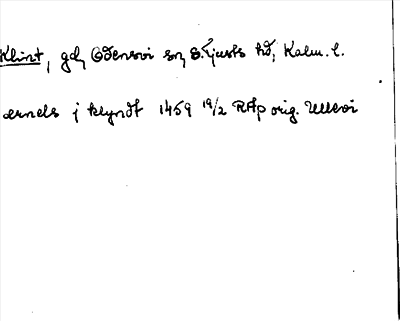 Klint, gd, Odensvi sn, S. Tjusts hd, Kalm. l.
ærnels j klyndt 1459 19/2 RAp orig. Ukna